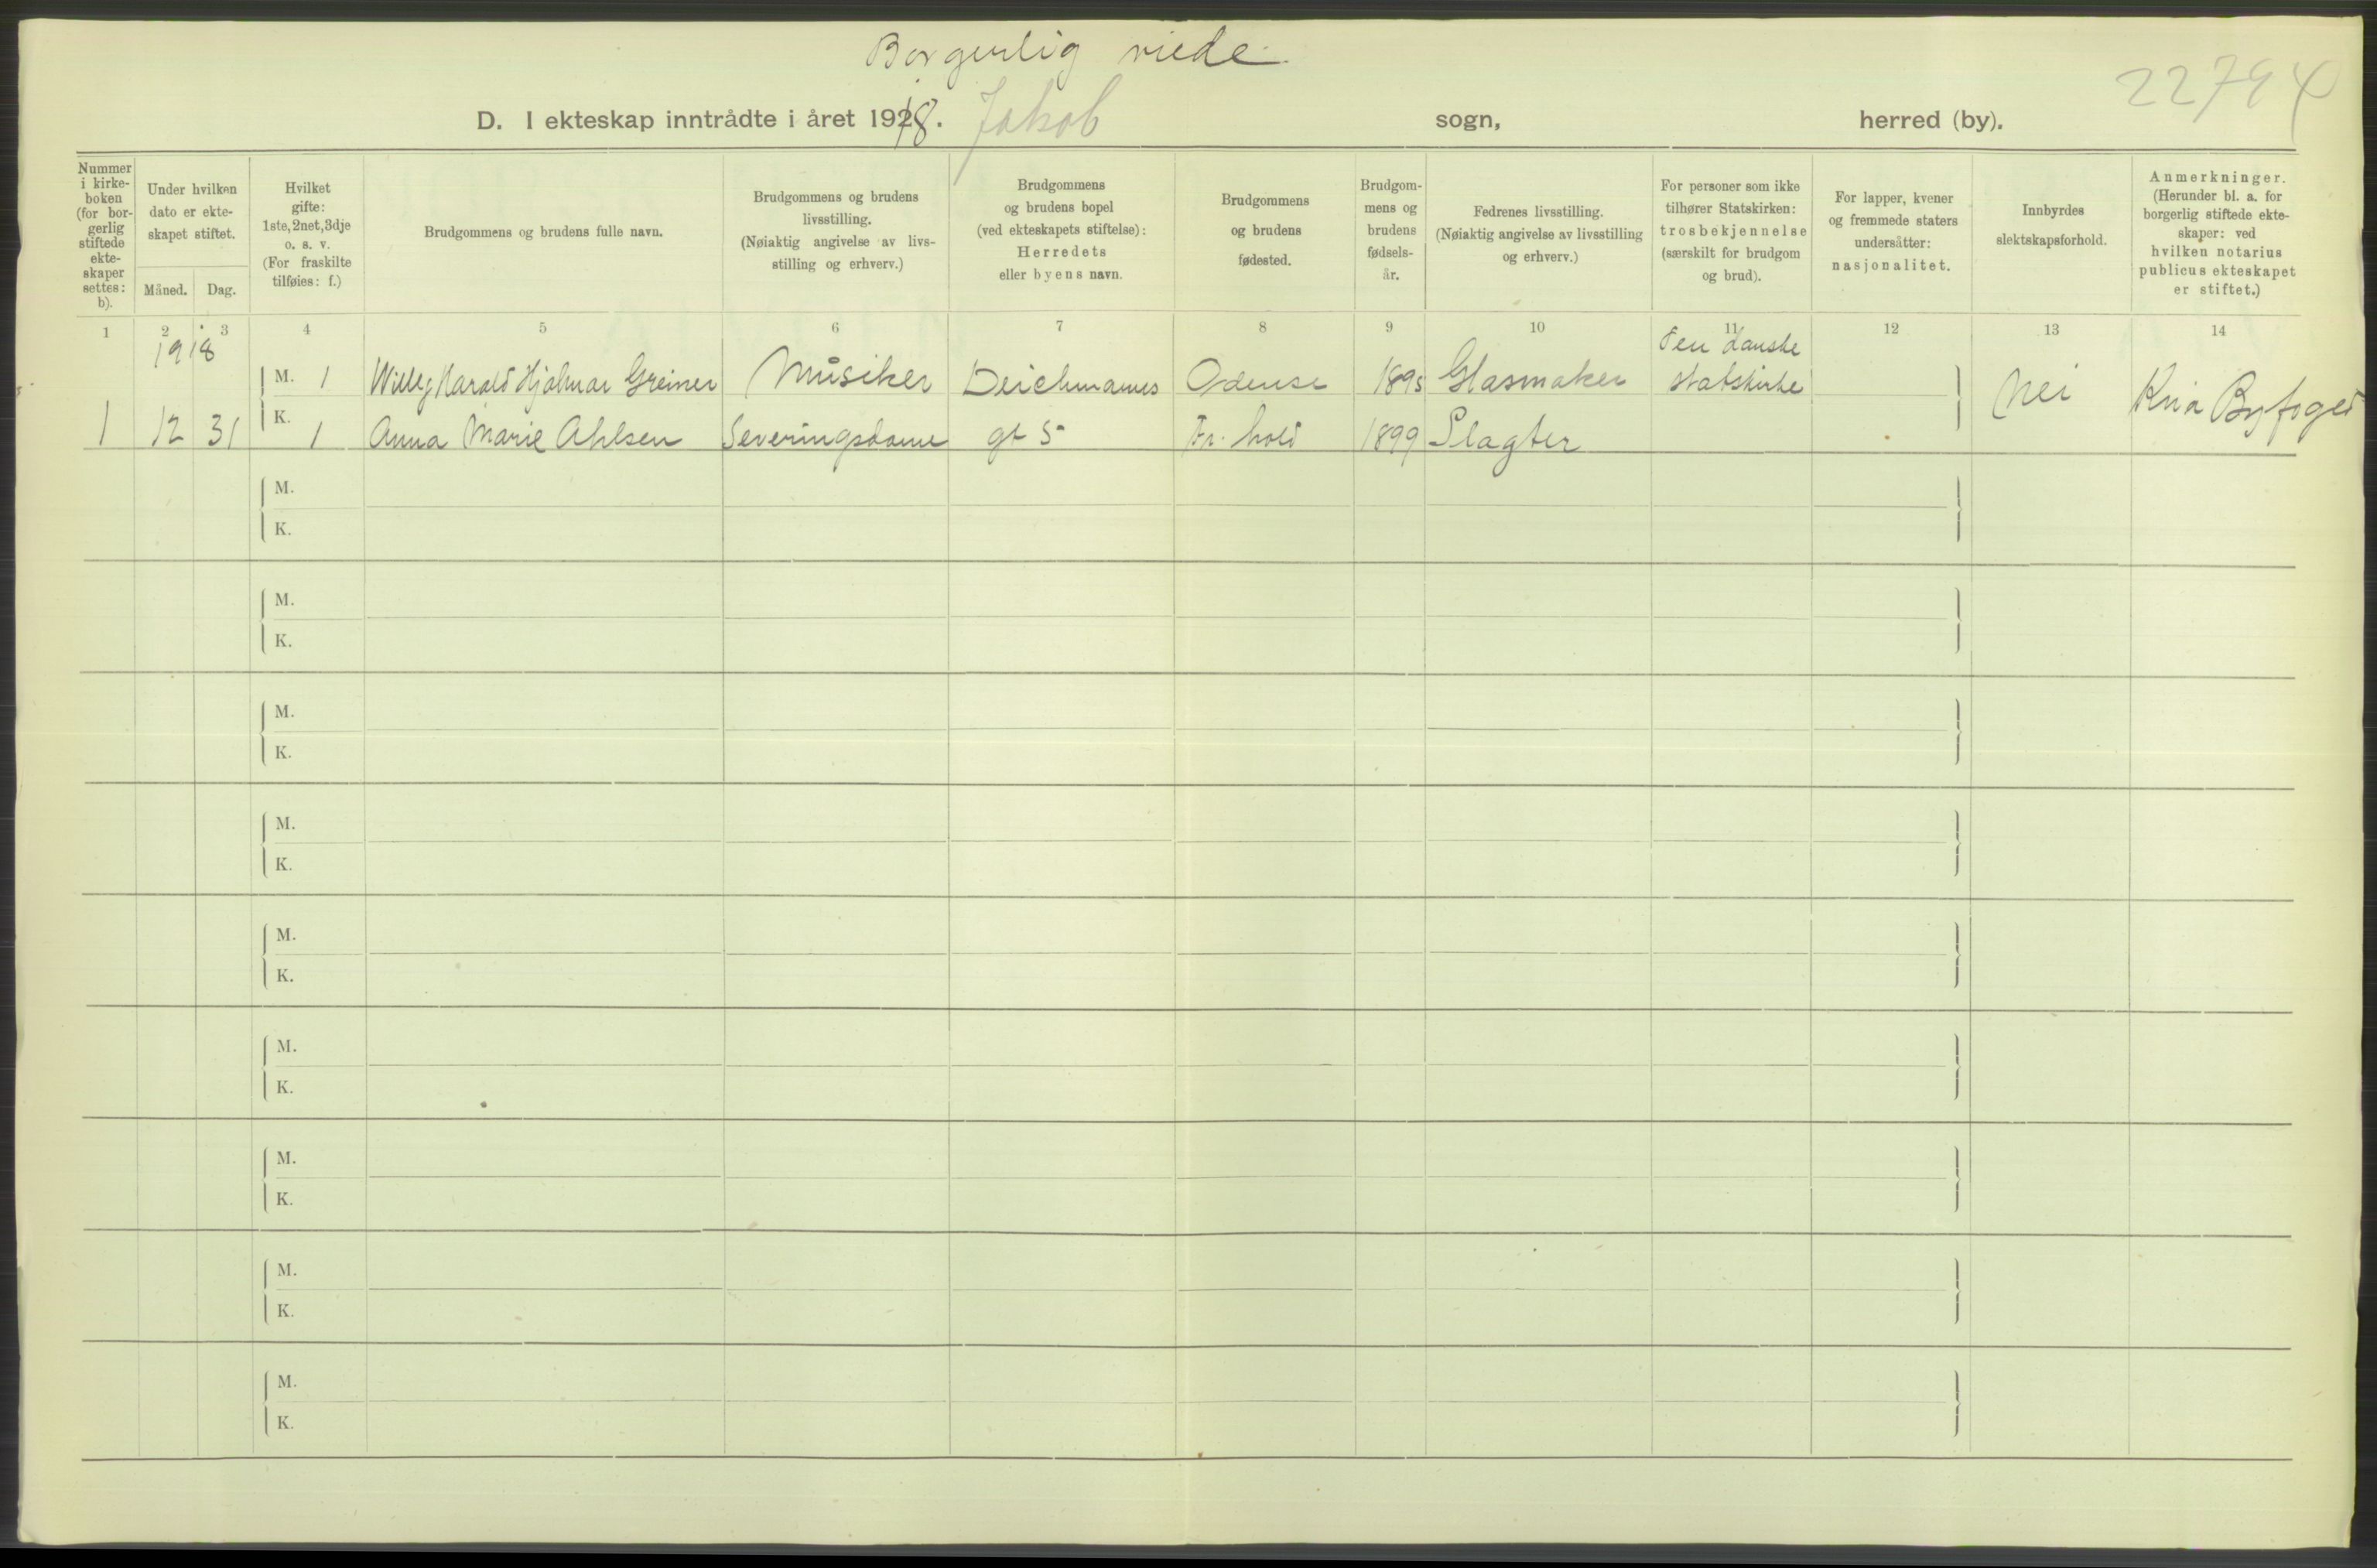 Borgerlig viede.
22794
D. I ekteskap inntrådte i året 1918. Jakob sogn, herred (by).
Nummer i kirke- boken (for bor- gerlig stiftede ekte- skaper settes: b).
Under hvilken dato er ekte- skapet stiftet.
Måned. Dag.
Hvilket gifte: 1ste, 2net, 3dje o. s. v. (For fraskilte tilføies: f.)
Brudgommens og brudens fulle navn.
Brudgommens og brudens livsstilling. (Nøiaktig angivelse av livs- stilling og erhverv.)
Brudgommens og brudens bopel (ved ekteskapets stiftelse): Herredets eller byens navn.
Brudgommens og brudens fødested.
Brudgom- mens og brudens fødsels- år.
Fedrenes livsstilling. (Nøiaktig angivelse av livsstilling og erhverv.)
For personer som ikke tilhører Statskirken: trosbekjennelse (særskilt for brudgom og brud).
For lapper, kvener og fremmede staters undersåtter: nasjonalitet.
Innbyrdes slektskapsforhold.
Anmerkninger. (Herunder bl. a. for borgerlig stiftede ekte- skaper: ved hvilken notarius publicus ekteskapet er stiftet.)
1 2 3 4 5 6 7 8 9 10 11 12 13 14
1918 Den danske
M. 1 Willy Harald Hjalmar Greiner Musiker Deichmanns Odense 1895 Glasmaker statskirke Nei Kria Byfoged
1 12 31 K. 1 Anna Marie Ahlsen Severingsdame gt 5 Fr. hald 1899 Slagter
M.
K.
M.
K.
M.
K.
M.
K.
M.
K.
M.
K.
M.
K.
M.
K.
M.
K.